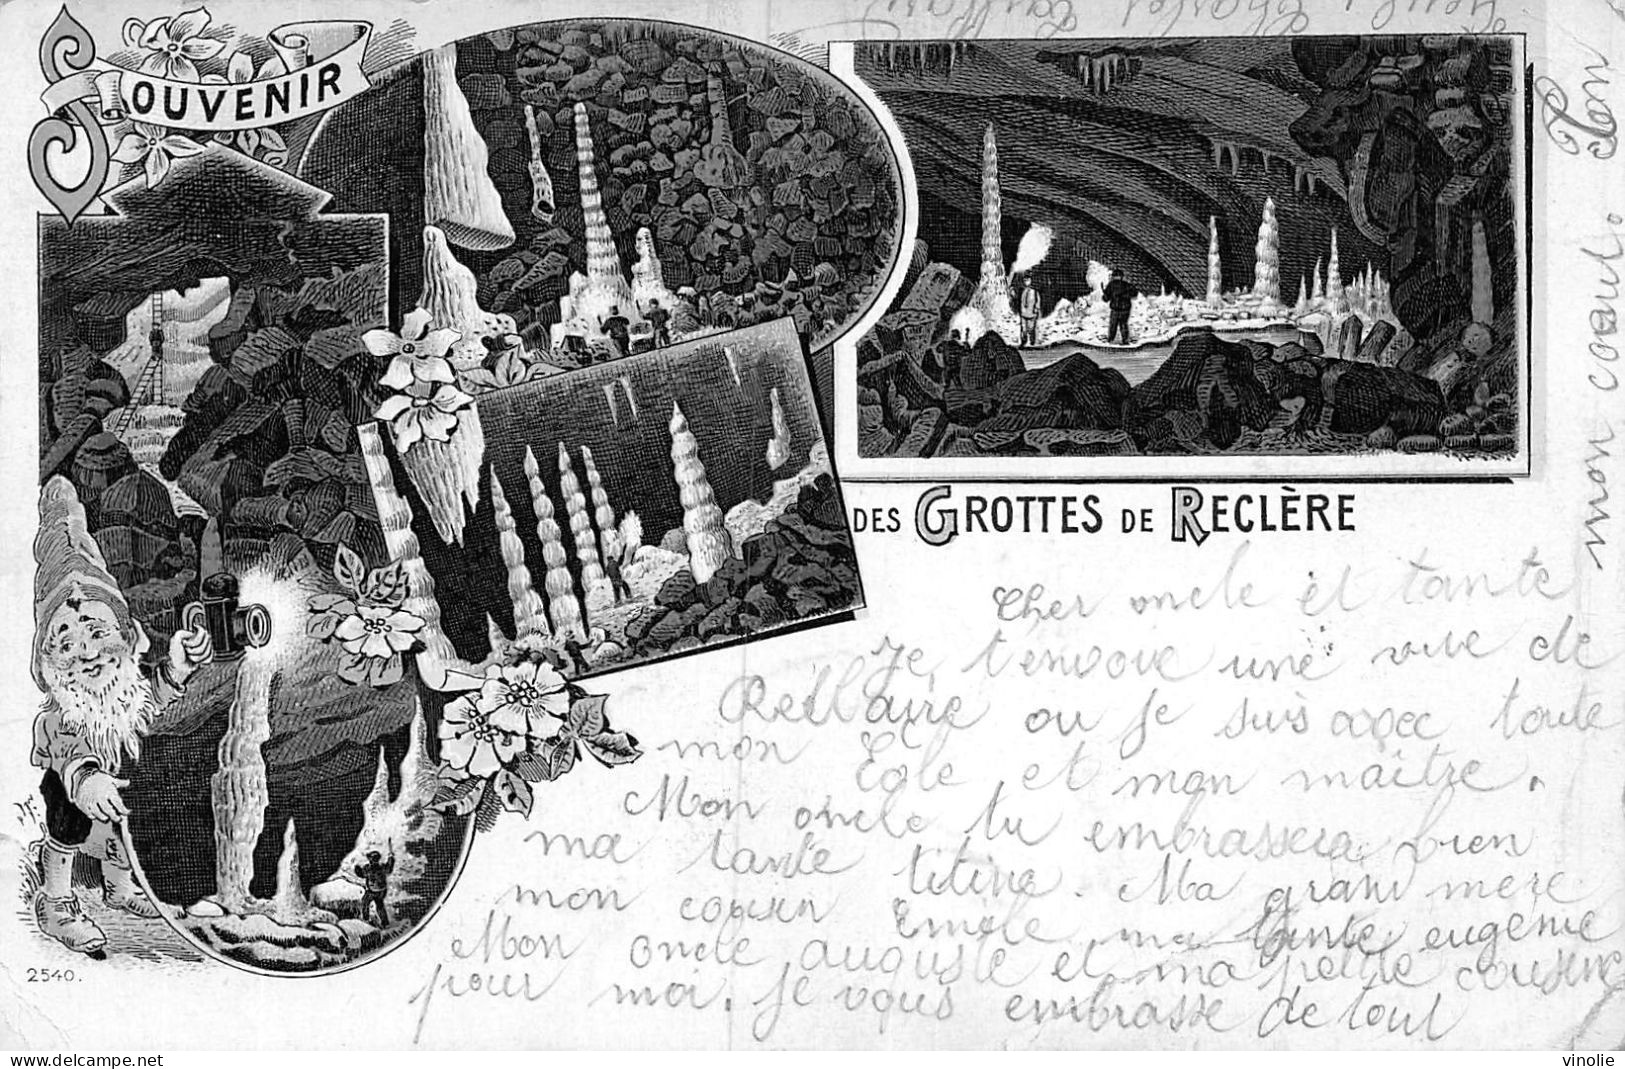 SOUVENIR
DES GROTTES DE RECLÈRE
Cher oncle et tante
Je t'envoie une vue de
ou je suis avec toute
mon Ecole et mon maître.
Mon oncle tu embrassera bien
ma tante titine. Ma grand mere
mon cousin Emile ma tante eugenie
Mon oncle auguste et ma petite cousine
pour moi. Je vous embrasse de tout
mon cœur.
2540.
vinolie